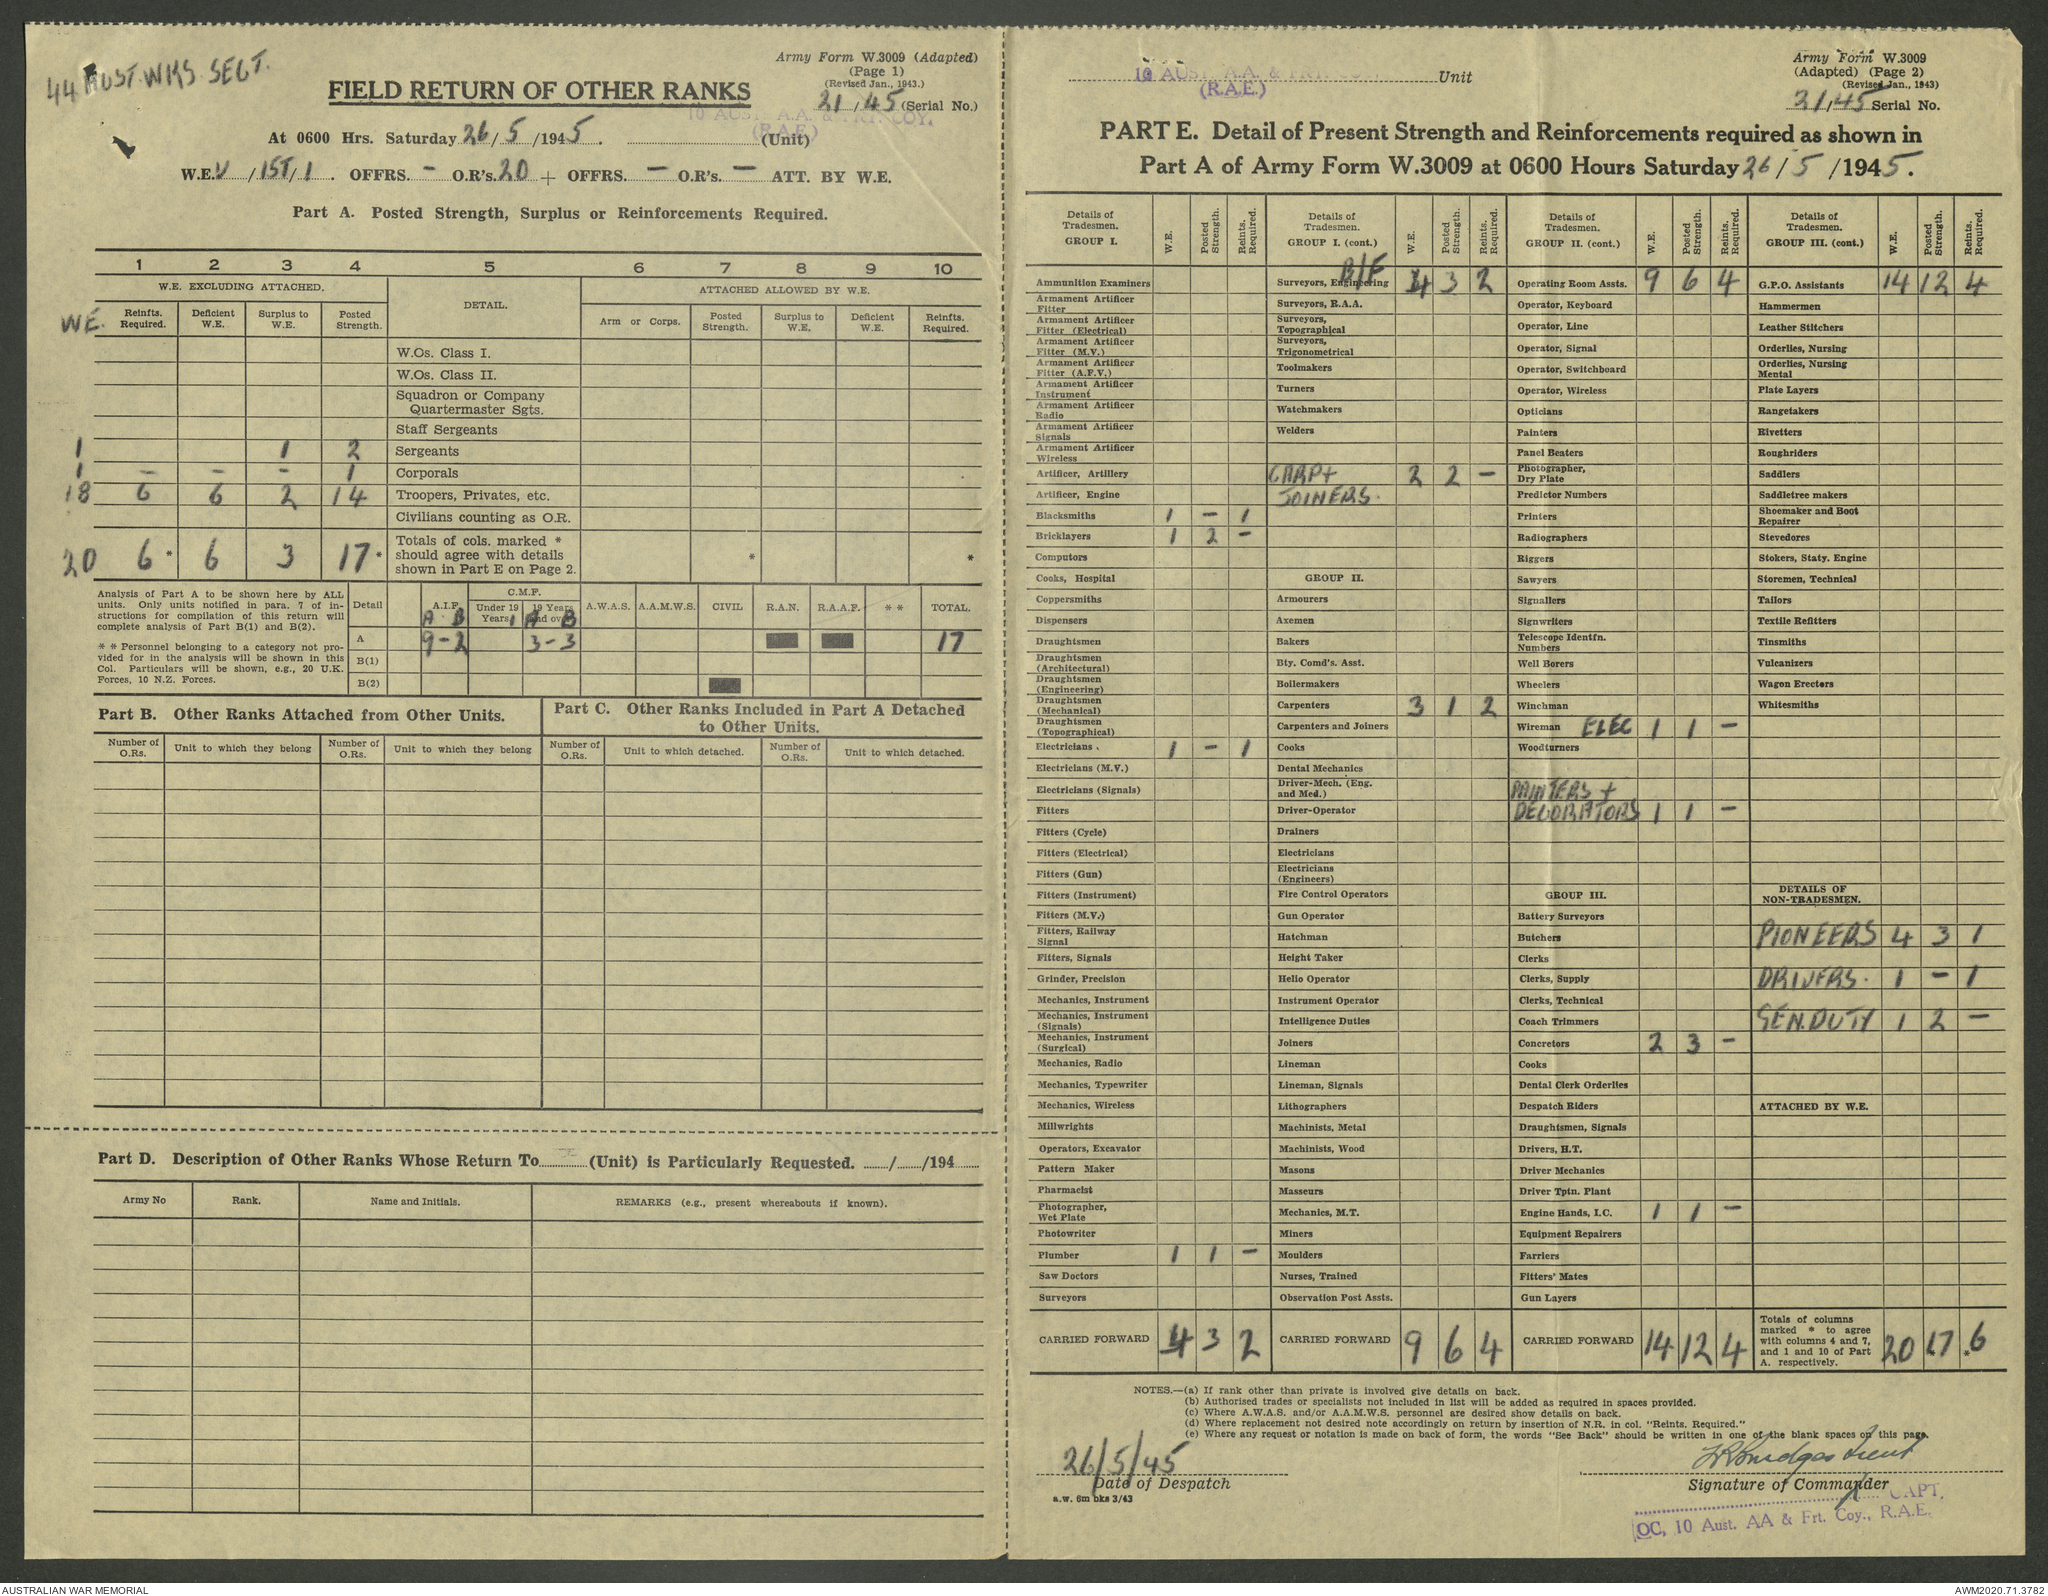 44 AUST. WKS. SECT.
Army Form W.3009 (Adapted)
(Page 1)
(Revised Jan., 1943.)
FIELD RETURN OF OTHER RANKS
21/45 (Serial No.)
10 AUST. A.A. & FRT. COY.
(R.A.E.)
At 0600 Hrs. Saturday 26/5/1945. (Unit)
W.E. V/1ST/1. OFFRS. - O.R's. 20 + OFFRS. - O.R's. - ATT. BY W.E.
Part A. Posted Strength, Surplus or Reinforcements Required.
1 2 3 4 5 6 7 8 9 10
W.E. EXCLUDING ATTACHED. DETAIL. ATTACHED ALLOWED BY W.E.
W.E. Reinfts. Required. Deficient W.E. Surplus to W.E. Posted Strength. Arm or Corps. Posted Strength. Surplus to W.E. Deficient W.E. Reinfts. Required.
W.Os. Class I.
W.Os. Class II.
Squadron or Company
Quartermaster Sgts.
Staff Sergeants
1 1 2 Sergeants
1 - - - 1 Corporals
18 6 6 2 14 Troopers, Privates, etc.
Civilians counting as O.R.
20 6 * 6 3 17 * Totals of cols. marked * should agree with details shown in Part E on Page 2. * *
Analysis of Part A to be shown here by ALL
units. Only units notified in para. 7 of in-
structions for compilation of this return will
complete analysis of Part B(1) and B(2).
* * Personnel belonging to a category not pro-
vided for in the analysis will be shown in this
Col. Particulars will be shown, e.g., 20 U.K.
Forces, 10 N.Z. Forces.
Detail A.I.F. C.M.F. Under 19 Years 19 Years and over A.W.A.S. A.A.M.W.S. CIVIL R.A.N. R.A.A.F. * * TOTAL.
A B A B
A 9-2 3-3 17
B(1)
B(2)
Part B. Other Ranks Attached from Other Units.
Number of O.Rs. Unit to which they belong Number of O.Rs. Unit to which they belong
Part C. Other Ranks Included in Part A Detached
to Other Units.
Number of O.Rs. Unit to which detached. Number of O.Rs. Unit to which detached.
Part D. Description of Other Ranks Whose Return To (Unit) is Particularly Requested. / /194
Army No Rank. Name and Initials. REMARKS (e.g., present whereabouts if known).
10 AUST. A.A. & FRT. COY. Unit
(R.A.E.)
Army Form W.3009
(Adapted) (Page 2)
(Revised Jan., 1943)
21/45 Serial No.
PART E. Detail of Present Strength and Reinforcements required as shown in
Part A of Army Form W.3009 at 0600 Hours Saturday 26/5/1945.
Details of Tradesmen. GROUP I. W.E. Posted Strength. Reints. Required.
Ammunition Examiners
Armament Artificer Fitter
Armament Artificer Fitter (Electrical)
Armament Artificer Fitter (M.V.)
Armament Artificer Fitter (A.F.V.)
Armament Artificer Instrument
Armament Artificer Radio
Armament Artificer Signals
Armament Artificer Wireless
Artificer, Artillery
Artificer, Engine
Blacksmiths 1 - 1
Bricklayers 1 2 -
Computors
Cooks, Hospital
Coppersmiths
Dispensers
Draughtsmen
Draughtsmen (Architectural)
Draughtsmen (Engineering)
Draughtsmen (Mechanical)
Draughtsmen (Topographical)
Electricians 1 - 1
Electricians (M.V.)
Electricians (Signals)
Fitters
Fitters (Cycle)
Fitters (Electrical)
Fitters (Gun)
Fitters (Instrument)
Fitters (M.V.)
Fitters, Railway Signal
Fitters, Signals
Grinder, Precision
Mechanics, Instrument
Mechanics, Instrument (Signals)
Mechanics, Instrument (Surgical)
Mechanics, Radio
Mechanics, Typewriter
Mechanics, Wireless
Millwrights
Operators, Excavator
Pattern Maker
Pharmacist
Photographer, Wet Plate
Photowriter
Plumber 1 1 -
Saw Doctors
Surveyors
CARRIED FORWARD 4 3 2
Details of Tradesmen. GROUP I. (cont.) W.E. Posted Strength. Reints. Required.
B/F
Surveyors, Engineering 4 3 2
Surveyors, R.A.A.
Surveyors, Topographical
Surveyors, Trigonometrical
Toolmakers
Turners
Watchmakers
Welders
CARP + JOINERS. 2 2 -
GROUP II.
Armourers
Axemen
Bakers
Bty. Comd's. Asst.
Boilermakers
Carpenters 3 1 2
Carpenters and Joiners
Cooks
Dental Mechanics
Driver-Mech. (Eng. and Med.)
Driver-Operator
Drainers
Electricians
Electricians (Engineers)
Fire Control Operators
Gun Operator
Hatchman
Height Taker
Helio Operator
Instrument Operator
Intelligence Duties
Joiners
Lineman
Lineman, Signals
Lithographers
Machinists, Metal
Machinists, Wood
Masons
Masseurs
Mechanics, M.T.
Miners
Moulders
Nurses, Trained
Observation Post Assts.
CARRIED FORWARD 9 6 4
Details of Tradesmen. GROUP II. (cont.) W.E. Posted Strength. Reints. Required.
Operating Room Assts. 9 6 4
Operator, Keyboard
Operator, Line
Operator, Signal
Operator, Switchboard
Operator, Wireless
Opticians
Painters
Panel Beaters
Photographer, Dry Plate
Predictor Numbers
Printers
Radiographers
Riggers
Sawyers
Signallers
Signwriters
Telescope Identfn. Numbers
Well Borers
Wheelers
Winchman
Wireman ELEC 1 1 -
Woodturners
PAINTERS + DECORATORS 1 1 -
GROUP III.
Battery Surveyors
Butchers
Clerks
Clerks, Supply
Clerks, Technical
Coach Trimmers
Concretors 2 3 -
Cooks
Dental Clerk Orderlies
Despatch Riders
Draughtsmen, Signals
Drivers, H.T.
Driver Mechanics
Driver Tptn. Plant
Engine Hands, I.C. 1 1 -
Equipment Repairers
Farriers
Fitters' Mates
Gun Layers
CARRIED FORWARD 14 12 4
Details of Tradesmen. GROUP III. (cont.) W.E. Posted Strength. Reints. Required.
G.P.O. Assistants 14 12 4
Hammermen
Leather Stitchers
Orderlies, Nursing
Orderlies, Nursing Mental
Plate Layers
Rangetakers
Rivetters
Roughriders
Saddlers
Saddletree makers
Shoemaker and Boot Repairer
Stevedores
Stokers, Staty. Engine
Storemen, Technical
Tailors
Textile Refitters
Tinsmiths
Vulcanizers
Wagon Erectors
Whitesmiths
DETAILS OF NON-TRADESMEN.
PIONEERS 4 3 1
DRIVERS. 1 - 1
GEN. DUTY 1 2 -
ATTACHED BY W.E.
Totals of columns marked * to agree with columns 4 and 7, and 1 and 10 of Part A. respectively. 20 *17 *6
NOTES.—(a) If rank other than private is involved give details on back.
(b) Authorised trades or specialists not included in list will be added as required in spaces provided.
(c) Where A.W.A.S. and/or A.A.M.W.S. personnel are desired show details on back.
(d) Where replacement not desired note accordingly on return by insertion of N.R. in col. "Reints. Required."
(e) Where any request or notation is made on back of form, the words "See Back" should be written in one of the blank spaces on this page.
26/5/45
Date of Despatch
a.w. 6m bks 3/43
Signature of Commander
CAPT.
OC, 10 Aust. AA & Frt. Coy., R.A.E.
AUSTRALIAN WAR MEMORIAL
AWM2020.71.3782